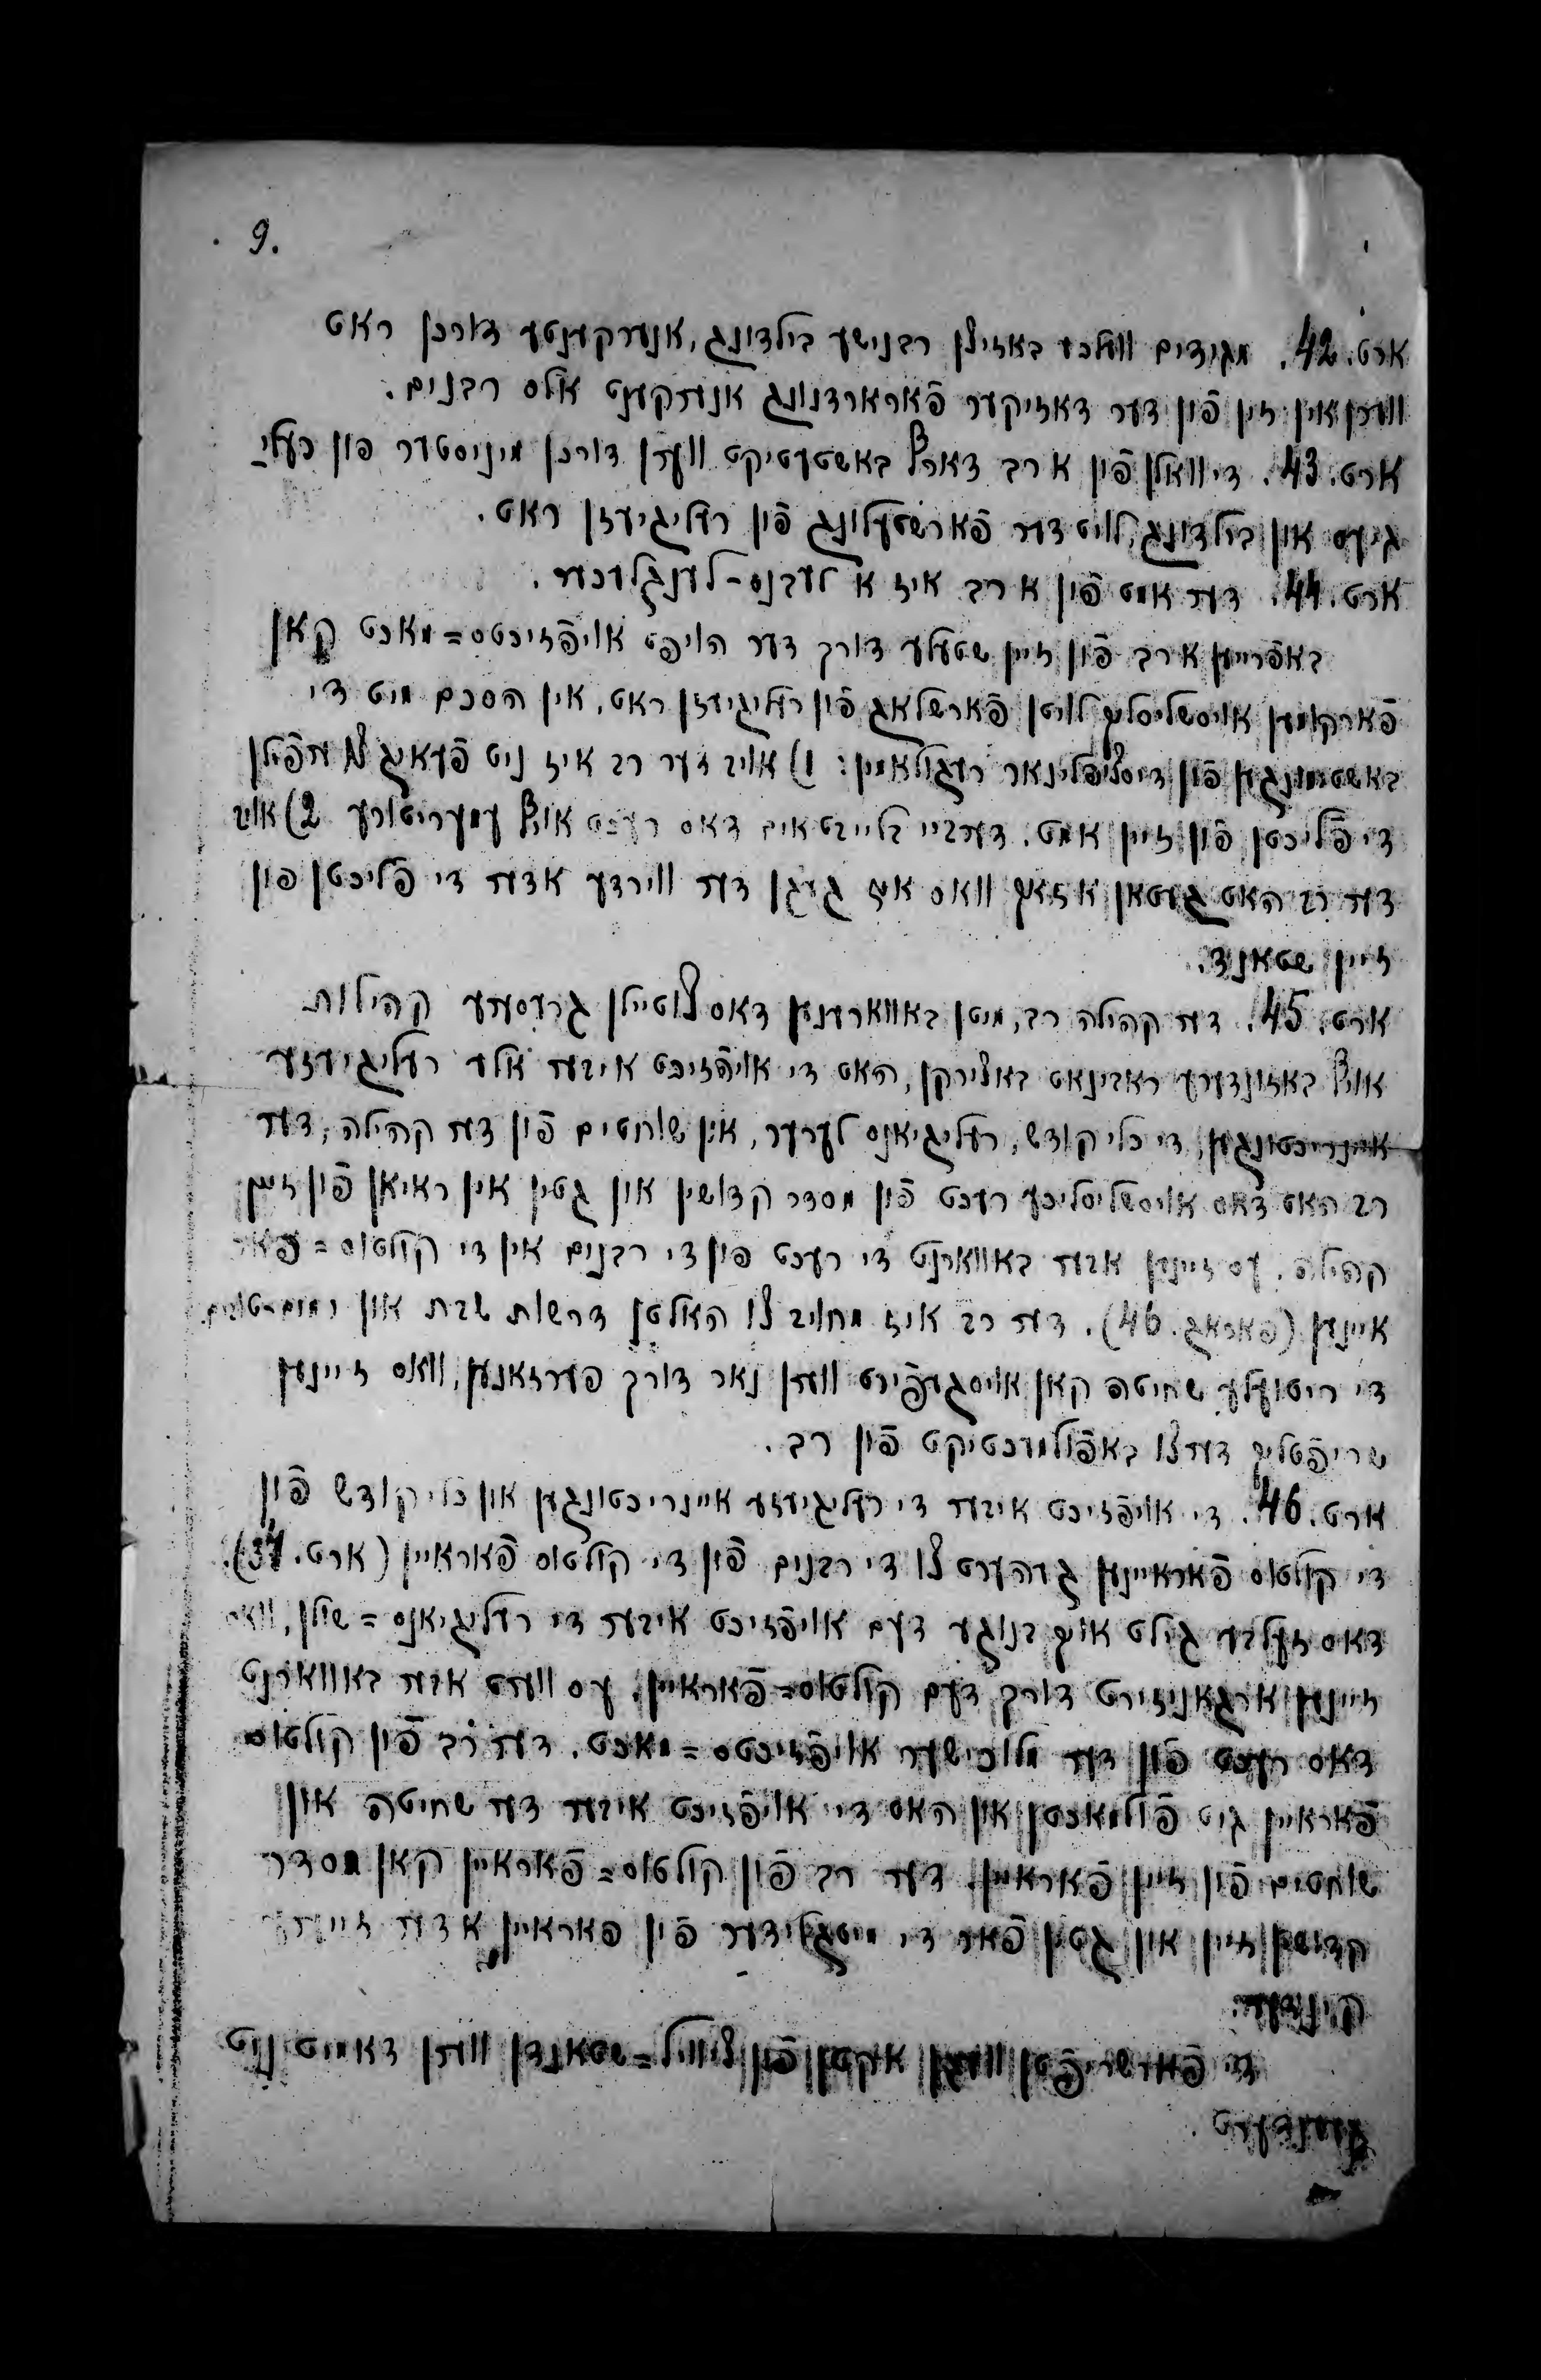 9.
ארט. 42. מגידים וועלכע באזיצן רבנישע בילדונג, אנערקענטע דורכן ראט
ווערן אין זין פֿון דער דאזיקער פֿאראָרדנונג אנערקענט אלס רבנים.
ארט. 43. די וואלן פֿון א רב דארף באשטעטיקט ווערן דורכן מיניסטער פון רעלי־
גיעס און בילדונג, לויט דער פֿארשטעלונג פֿון רעליגיעזן ראט.
ארט. 44. דער אמט פֿון א רב איז א לעבנס-לענגלעכער.
באפֿרייען א רב פֿון זיין שטעלע דורך דער הויפט אויפֿזיכטס=מאכט קאן
פֿארקומען אויסשליסלעך לויטן פֿארשלאג פֿון רעליגיעזן ראט, אין הסכם מיט די
באשטימונגען פֿון דיסציפלינאר רעגולאמין: 1) אויב דער רב איז ניט פֿעאיג צו ערפֿילן
די פֿליכטן פֿון זיין אמט. דערביי בלייבט אים דאס רעכט אויף עמעריטורע 2) אויב
דער רב האט געטאן אזאך וואס איז געגן דער ווירדע אדער די פֿליכטן פון
זיין שטאנד.
ארט. 45. דער קהילה רב, מיטן באווארענען דאס צוטיילן גרעסערע קהילות
אויף באזונדערע ראבינאט באצירקן, האט די אויפֿזיכט איבער אלע רעליגיעזע
איינריכטונגען, די כלי קודש, רעליגיאנס לערער, און שוחטים פֿון דער קהילה, דער
רב האט דאס אויסשליסליכע רעכט פֿון מסדר קדושין און גטין אין ראיאן פֿון זיין
קהילה. עס זיינען אבער באווארנט די רעכט פון די רבנים אין די קולטוס=פֿאר
איינען (פאראג. 46). דער רב איז מחויב צו האלטן דרשות שבת און ימים-טובים.
די ריטועלע שחיטה קאן אויסגעפֿירט ווערן נאר דורך פערזאנען, וואס זיינען
שריפֿטליך דערצו באפֿולמעכטיקט פֿון רב.
ארט. 46. די אויפֿזיכט איבער די רעליגיעזע איינריכטונגען און כלי קודש פֿון
די קולטוס פֿאראיינען געהערט צו די רבנים פֿון די קולטוס פֿאראיין (ארט. 37).
דאס זעלבע גילט אויך בנוגע דעם אויפֿזיכט איבער די רעליגיאנס=שולן, וואס
זיינען ארגאניזירט דורך דעם קולטוס=פֿאראיין. עס ווערט אבער באווארנט
דאס רעכט פֿון דער מלוכישער אויפֿזיכטס=מאכט. דער רב פֿון קולטוס
פֿאראיין גיט פֿולמאכטן און האט די אויפֿזיכט איבער דער שחיטה און
שוחטים פֿון זיין פֿאראיין. דער רב פֿון קולטוס=פֿאראיין קאן מסדר
קדושין זיין און גטין פֿאר די מיטגלידער פֿון פאראיין אדער זייערע
קינדער.
די פֿארשריפֿטן וועגן אקטן פֿון ציוויל=שטאנדן ווערן דאמיט ניט
געענדערט.